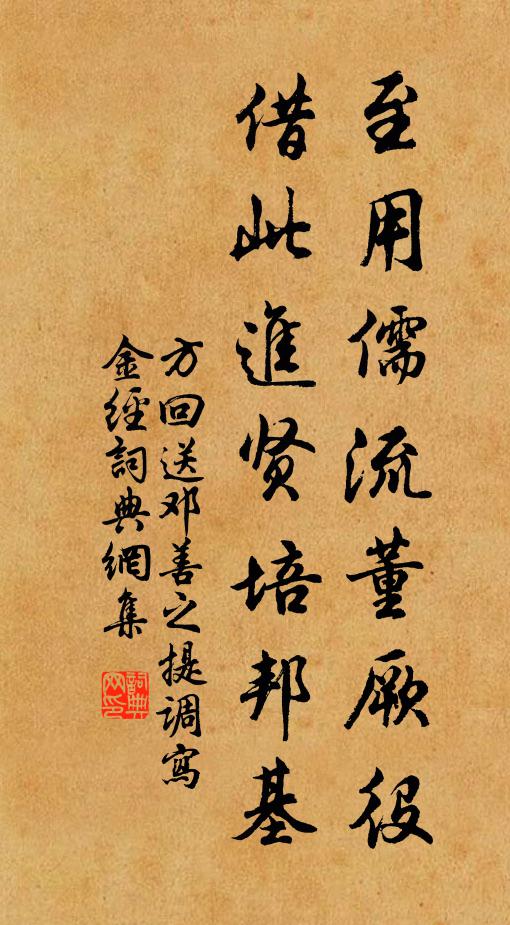 至用儒流董厥役
借此進贤培邦基
方回送邓善之提調寫
金經詞典網集
詞典网印